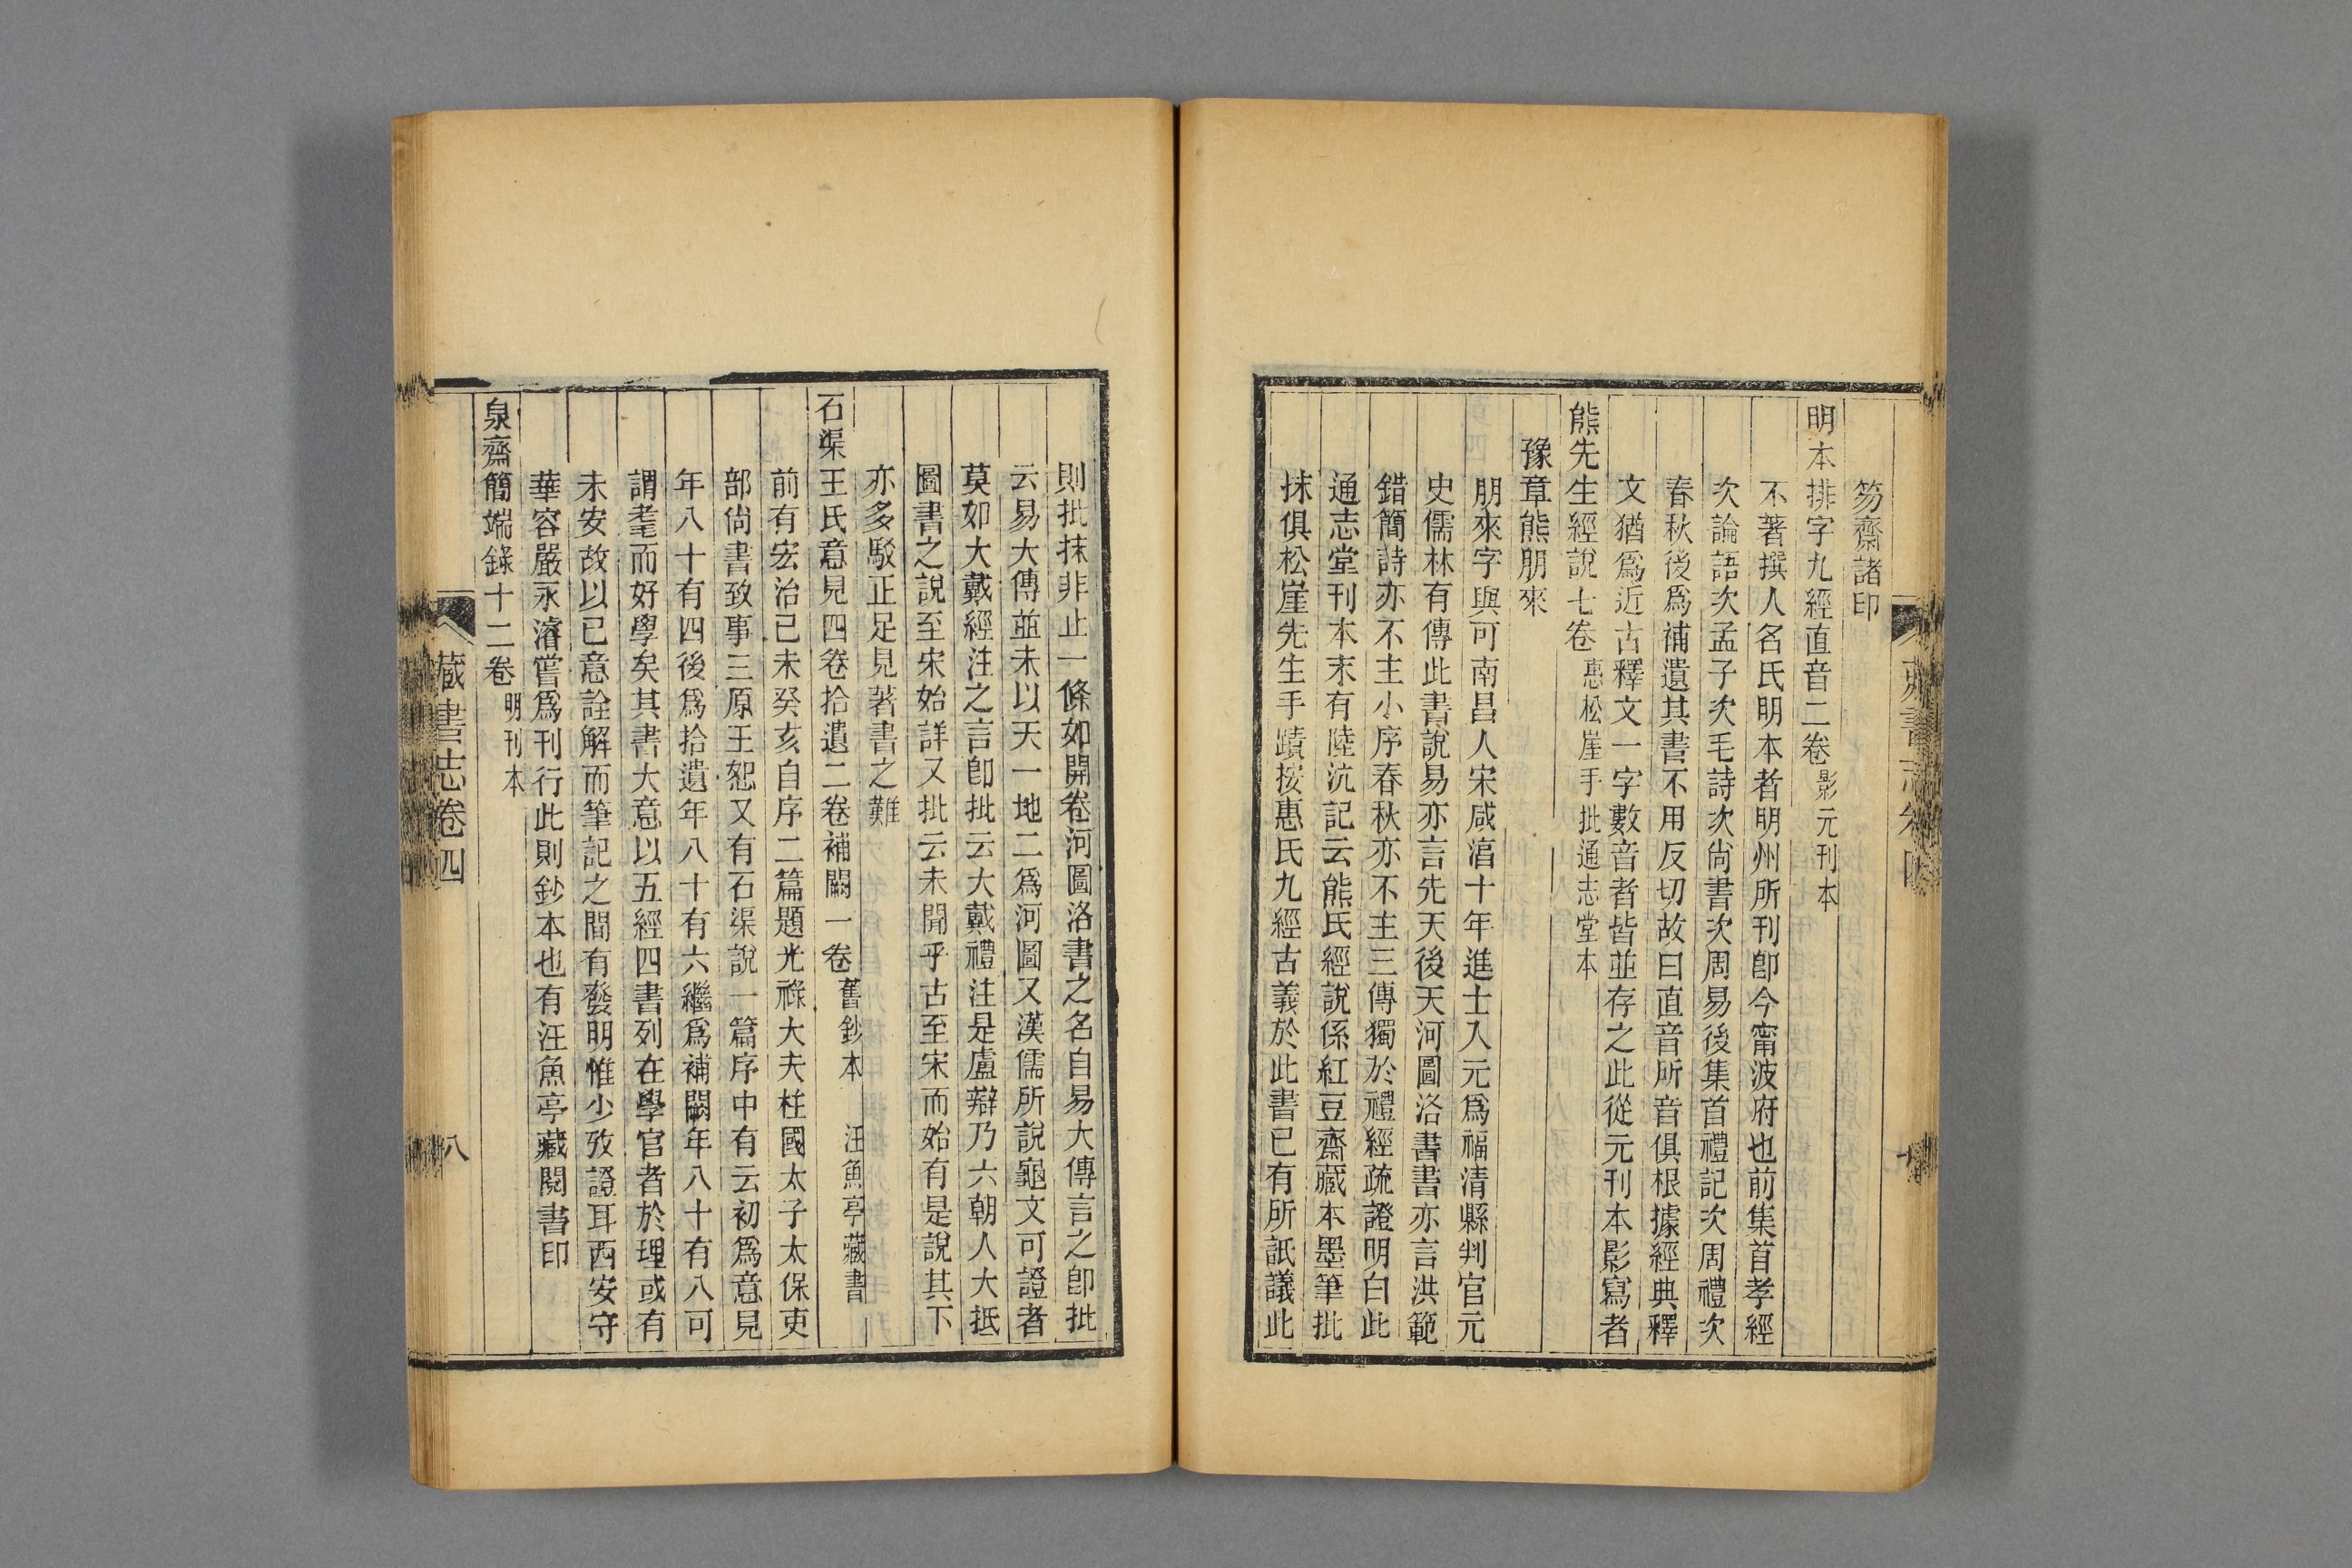 笏齋諸印
明本排字九經直音二卷影元刊本
不著撰人名氏明本者明州所刊卽今甯波府也前集首孝經
次論語次孟子次毛詩次尙書次周易後集首禮記次周禮次
春秋後爲補遺其書不用反切故曰直音所音俱根據經典釋
文猶爲近古釋文一字數音者皆並存之此從元刊本影寫者
熊先生經說七卷惠松崖手批通志堂本
豫章熊朋來
朋來字與可南昌人宋咸淳十年進士入元爲福清縣判官元
史儒林有傳此書說易亦言先天後天河圖洛書書亦言洪範
錯簡詩亦不主小序春秋亦不主三傳獨於禮經疏證明白此
通志堂刊本末有陸沆記云熊氏經說係紅豆齋藏本墨筆批
抹俱松崖先生手蹟按惠氏九經古義於此書已有所詆議此
則批抹非止一條如開卷河圖洛書之名自易大傳言之卽批
云易大傳並未以天一地二爲河圖又漢儒所說龜文可證者
莫如大戴經注之言卽批云大戴禮注是盧辯乃六朝人大抵
圖書之說至宋始詳又批云未聞乎古至宋而始有是說其下
亦多駁正足見著書之難
石渠王氏意見四卷拾遺二卷補闕一卷舊鈔本 汪魚亭藏書
前有宏治己未癸亥自序二篇題光祿大夫柱國太子太保吏
部尙書致事三原王恕又有石渠說一篇序中有云初爲意見
年八十有四後爲拾遺年八十有六繼爲補闕年八十有八可
謂耄而好學矣其書大意以五經四書列在學官者於理或有
未安故以己意詮解而筆記之間有發明惟少攷證耳西安守
華容嚴永濬嘗爲刊行此則鈔本也有汪魚亭藏閱書印
泉齋簡端錄十二卷明刊本
藏書志卷四
八